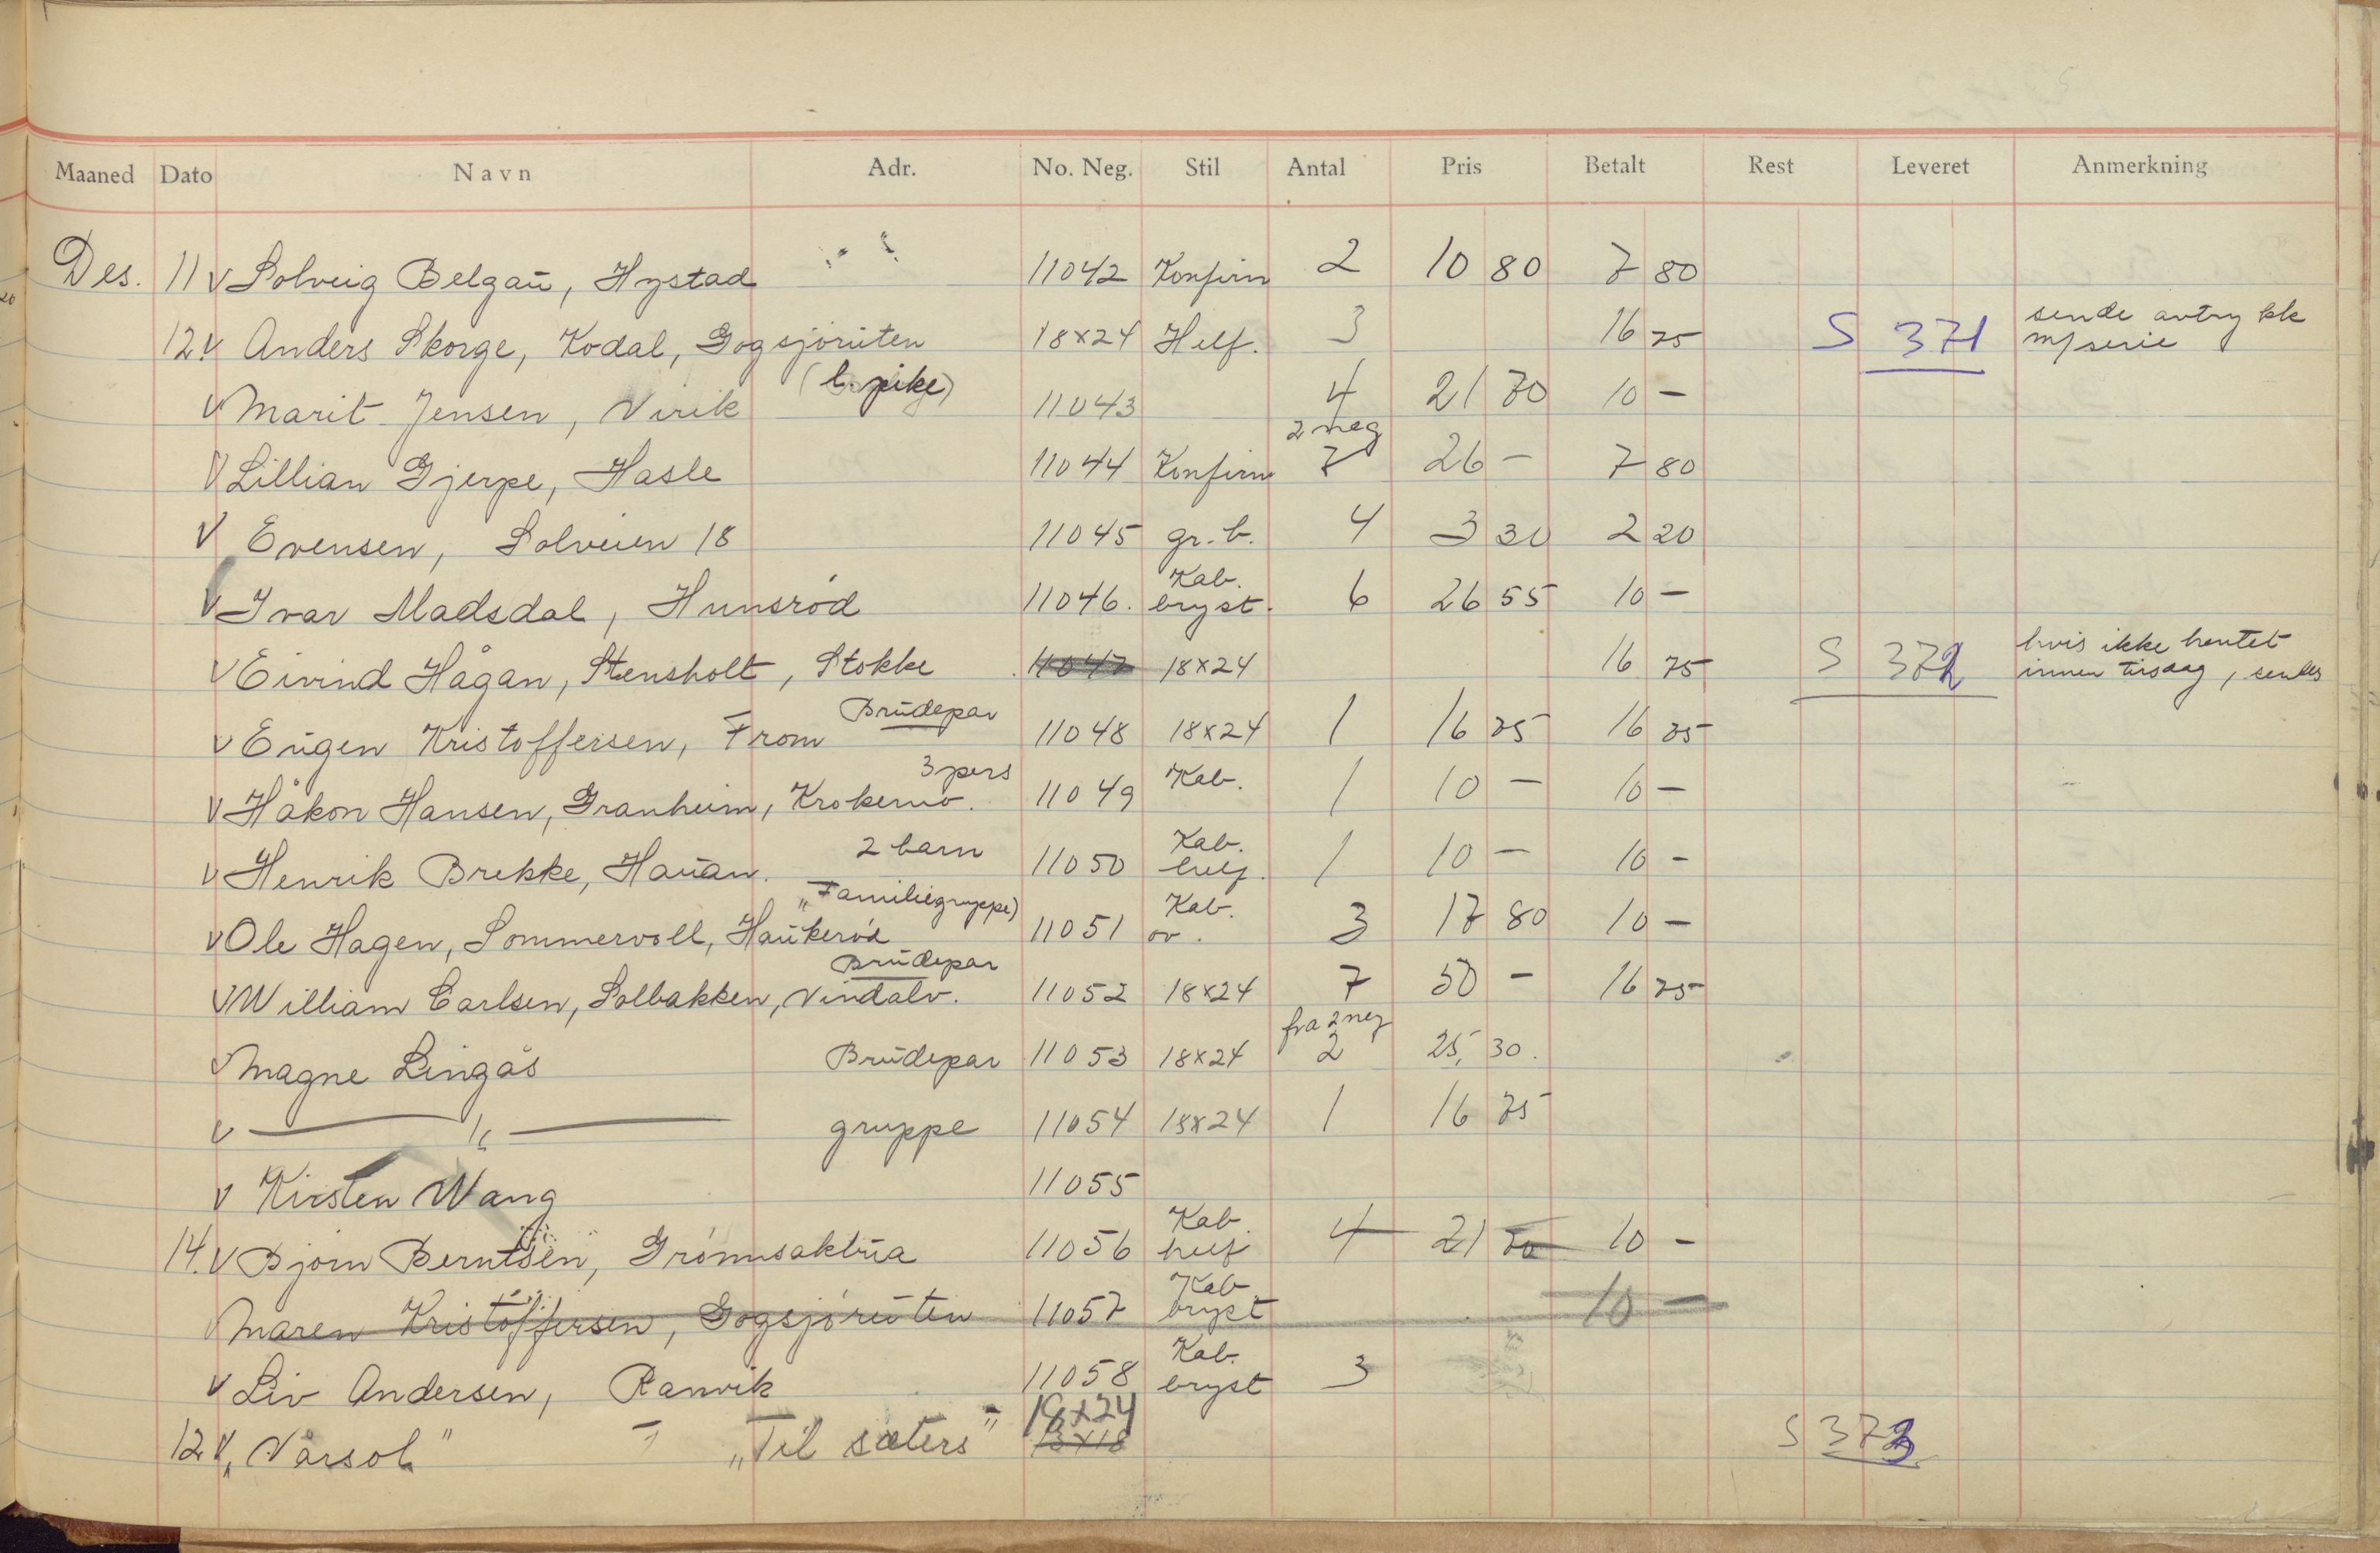 Maaned Dato Navn Adr. No. Neg. Stil Antal Pris Betalt Rest Leveret Anmerkning
Des. 11 V Solveig Belgaū, Hystad 11042 Konfirm 2 10 80 7 80
12 V Anders Skorge, Kodal, Gogsjørūten 18x24 Helf. 3 16 75 S 371 sende avtrykk m/serie
V Marit Jensen, Virik (l. pike) 11043 4 21 70 10 -
V Lillian Gjerpe, Hasle 11044 Konfirm 2 neg 7 26 - 7 80
V Evensen, Solveien 18 11045 gr. b. 4 3 30 2 20
V Ivar Madsdal, Hunsrød 11046. Kab. bryst. 6 26 55 10 -
V Eivind Hågan, Stensholt, Stokke 11047 18x24 16 75 S 372 hvis ikke hentet innen tirsdag, sendes
V Eūgen Kristoffersen, From Brūdepar 11048 18x24 1 16 75 16 75
V Håkon Hansen, Granheim, Krokemo. 3 pers 11049 Kab. 1 10 - 10 -
V Henrik Brekke, Haūan. 2 barn 11050 Kab. helf. 1 10 - 10 -
V Ole Hagen, Sommervoll, Haūkerød „Familiegruppe) 11051 Kab. ov. 3 17 80 10 -
V William Carlsen, Solbakken, Vindalv. Brūdepar 11052 18x24 7 50 - 16 75
V Magne Lingås Brūdepar 11053 18x24 fra 2 neg 2 25, 30.
V — " — gruppe 11054 18x24 1 16 75
V Kirsten Wang 11055
14. V Bjørn Berntsen, Grønnsakbūa 11056 Kab. helf 4 21 70 10 -
V Maren Kristoffersen, Gogsjørūten 11057 Kab bryst 10 -
V Liv Andersen, Ranvik 11058 Kab. bryst 3
12 V „Vårsol" „Til sæters" 18x24 13x18 S 373